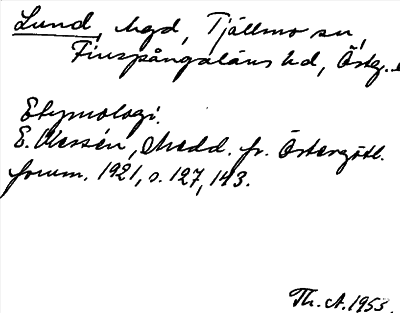 Lund, hgd, Tjällmo sn,
Finspångaläns hd, Östg.
Etymologi.
E. Wessén, Medd. fr. Östergötl.
fornm. 1921, s. 127, 143.
Th. A. 1953.